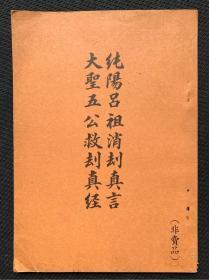 純陽呂祖消刦真言
大聖五公救刦真经
(非賣品)